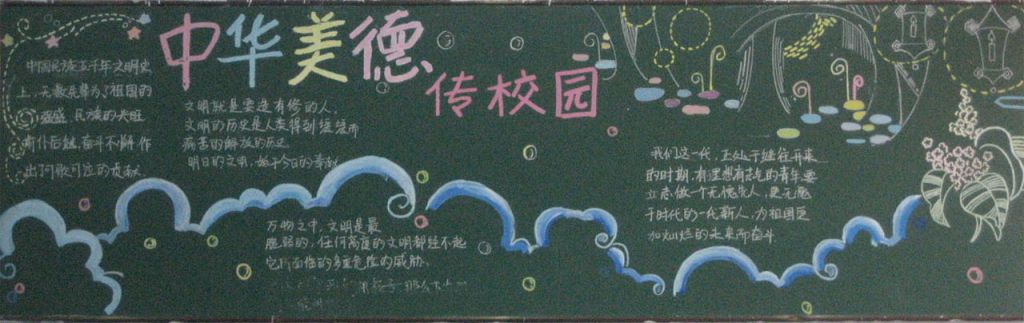 中华美德
传校园
中国民族五千年文明史
上，无数先辈为了祖国的
强盛，民族的兴旺
前仆后继，奋斗不懈，作
出可歌可泣的贡献
文明就是要造有修的人，
文明的历史是人类得到
病苦的解放的历史
明日的文明，始于今日的奉献
万物之中，文明是最
脆弱的，任何高度的文明都经不起
它所面临的多重危险的威胁，
我们这一代，正处于继往开来
的时期，有理想有志气的青年，要
立志做一个无愧先人，更无愧
于时代的一代新人，为祖国更
加灿烂的未来而奋斗